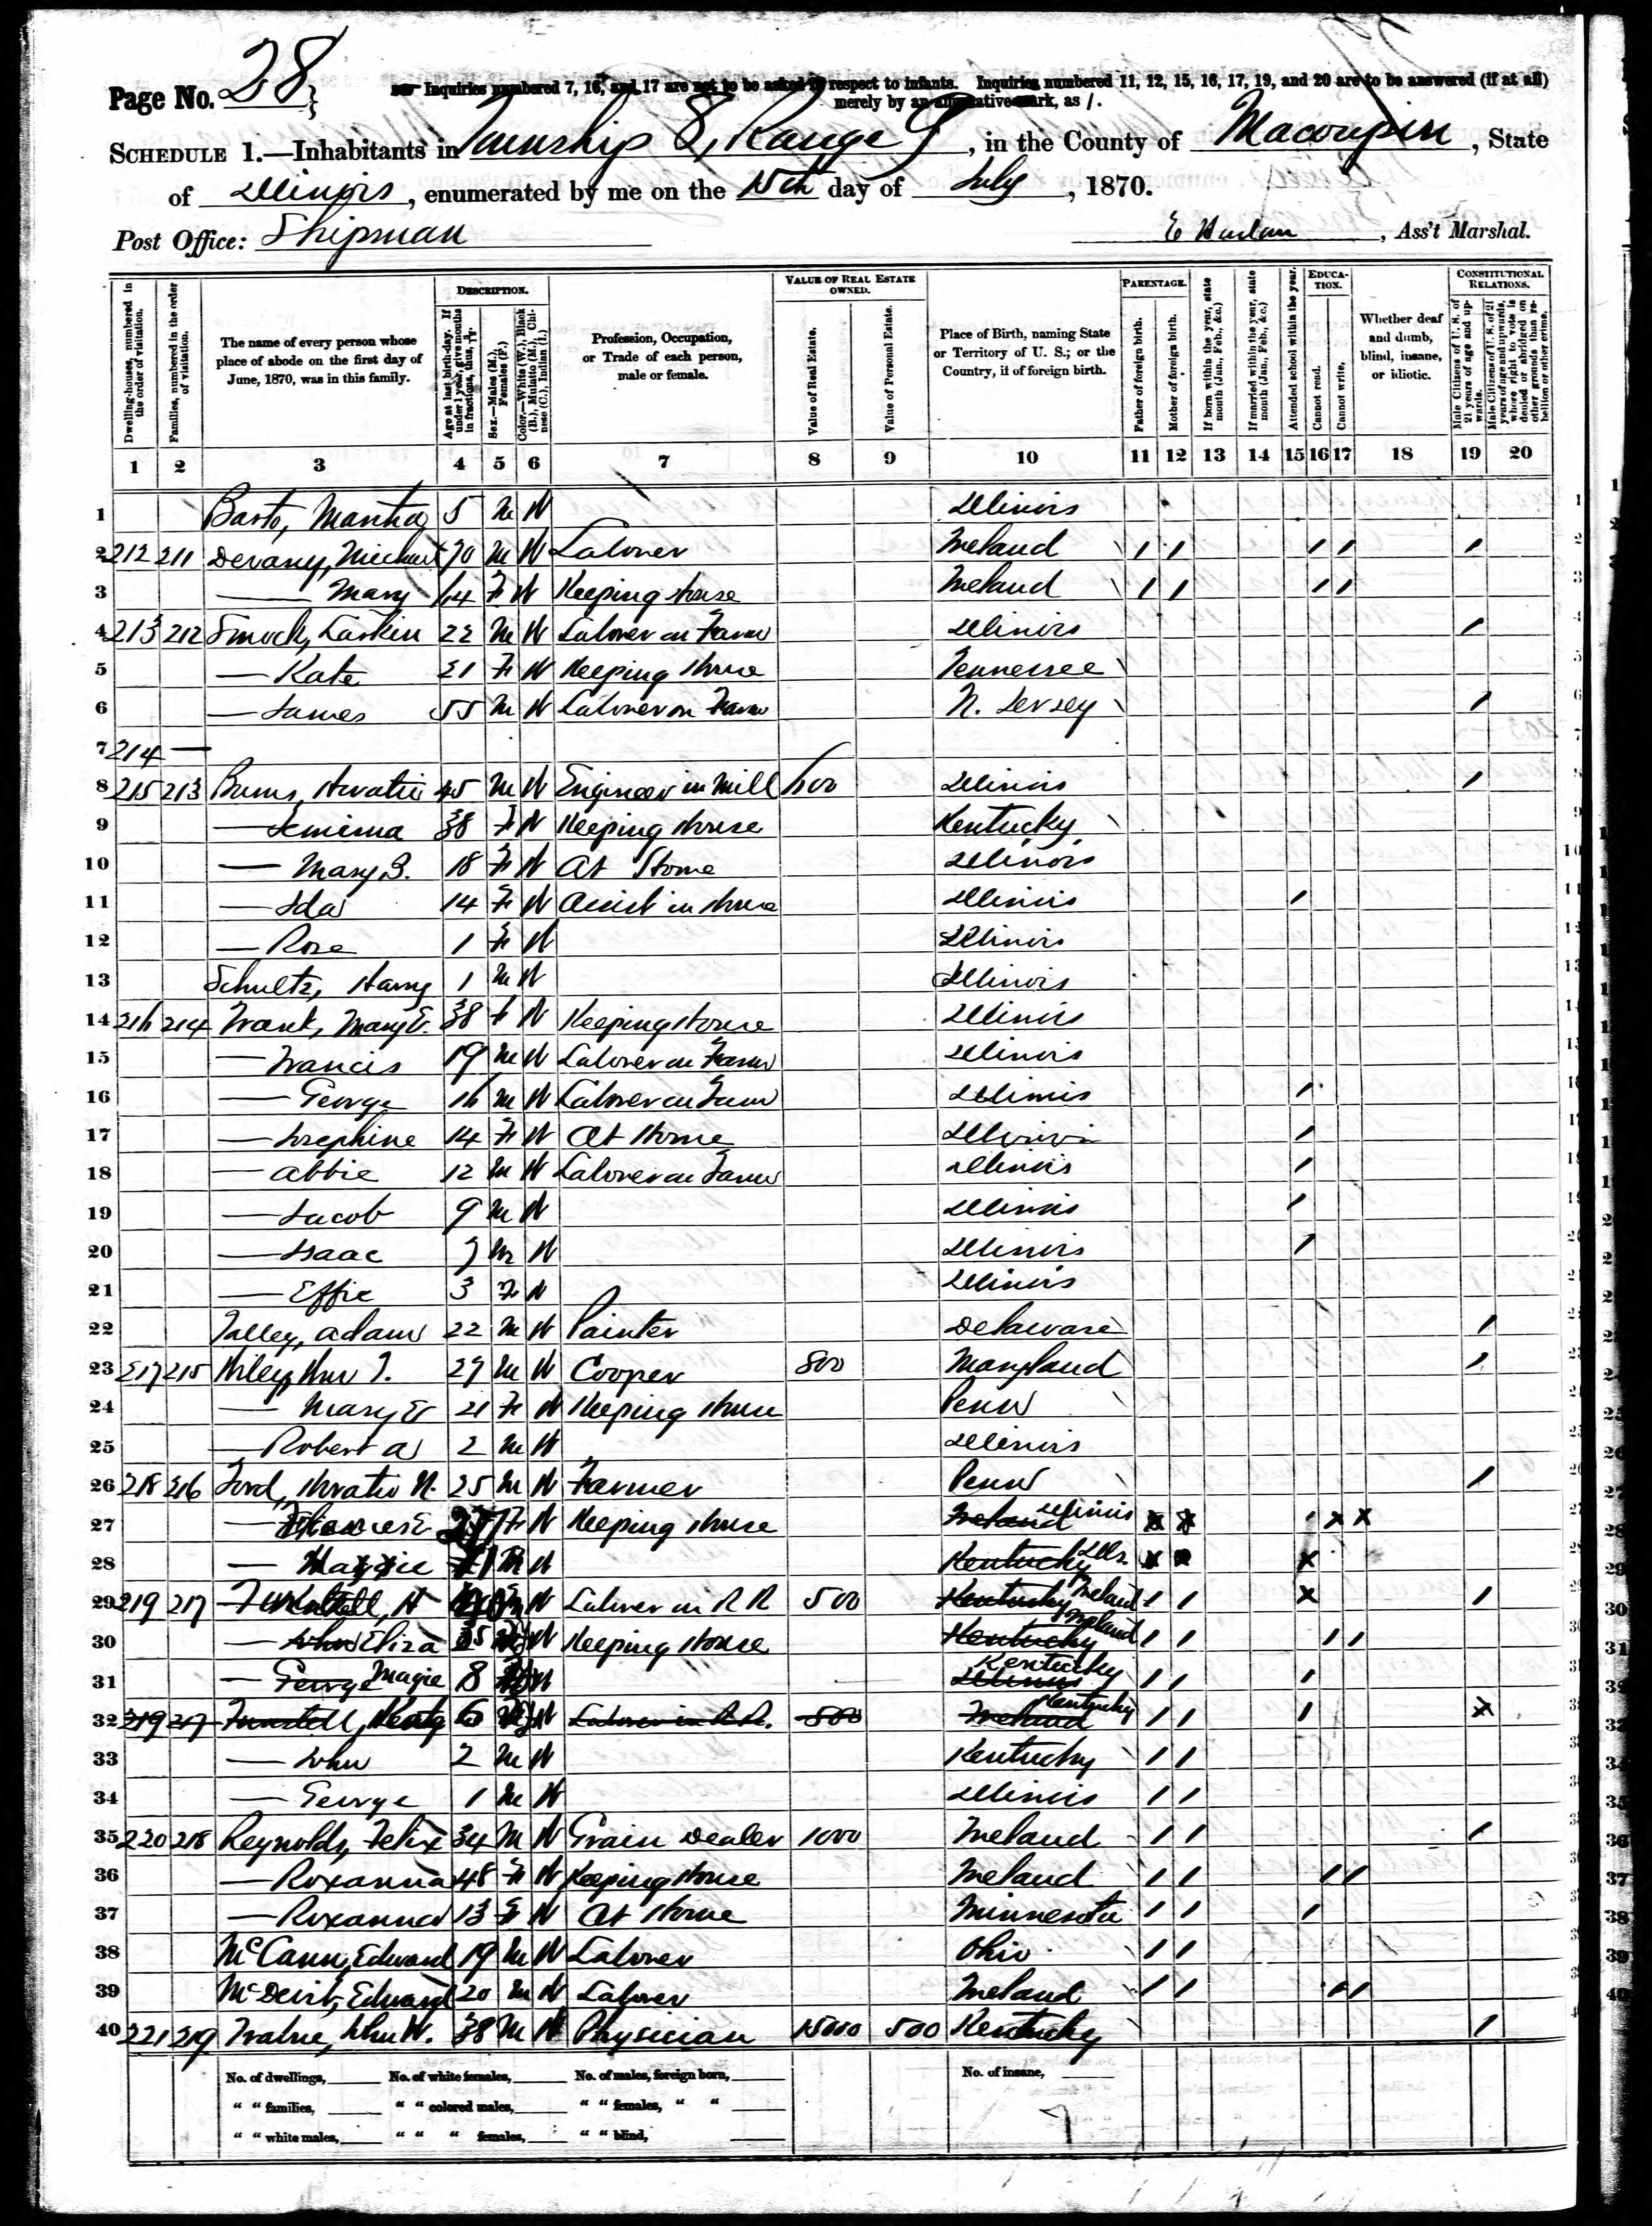 Page No. 28
Inquiries numbered 7, 16, and 17 are not to be asked in respect to infants. Inquiries numbered 11, 12, 15, 16, 17, 19, and 20 are to be answered (if at all)
merely by an affirmative mark, as /.
SCHEDULE 1.—Inhabitants in Township 8, Range 9, in the County of Macoupin, State
of Illinois, enumerated by me on the 15th day of July, 1870.
Post Office: Shipman
E Harlan, Ass't Marshal.
Dwelling-houses, numbered in the order of visitation.
Families, numbered in the order of visitation.
The name of every person whose place of abode on the first day of June, 1870, was in this family.
DESCRIPTION.
Age at last birth-day. If under 1 year, give months in fractions, thus,
Sex.—Males (M.), Females (F.)
Color.—White (W.), Black (B.), Mulatto (M.), Chinese (C.), Indian (I.)
Profession, Occupation, or Trade of each person, male or female.
VALUE OF REAL ESTATE OWNED.
Value of Real Estate.
Value of Personal Estate.
Place of Birth, naming State or Territory of U. S.; or the Country, if of foreign birth.
PARENTAGE.
Father of foreign birth.
Mother of foreign birth.
If born within the year, state month (Jan., Feb., &c.)
If married within the year, state month (Jan., Feb., &c.)
Attended school within the year.
EDUCATION.
Cannot read.
Cannot write.
Whether deaf and dumb, blind, insane, or idiotic.
CONSTITUTIONAL RELATIONS.
Male Citizens of U. S. of 21 years of age and upwards.
Male Citizens of U. S. of 21 years of age and upwards, whose right to vote is denied or abridged on other grounds than rebellion or other crime.
1 2 3 4 5 6 7 8 9 10 11 12 13 14 15 16 17 18 19 20
1 Martha 5 M W Illinois
2 212 211 Devany, Michael 70 M W Laborer Ireland / / / / /
3 — Mary 64 F W Keeping House Ireland / / / /
4 213 212 Smock, Larkin 22 M W Laborer on Farm Illinois /
5 — Kate 21 F W Keeping House Tennessee
6 — James 55 M W Laborer on Farm N. Jersey /
7 214 —
8 215 213 Burns, Horatio 45 M W Engineer in Mill 600 Illinois /
9 — Jemima 38 F W Keeping House Kentucky
10 — Mary B. 18 F W At Home Illinois
11 — Ida 14 F W Assist in House Illinois /
12 — Rose 1 F W Illinois
13 Schultz, Harry 1 M W Illinois
14 216 214 Frank, Mary E. 38 F W Keeping House Illinois
15 — Francis 19 M W Laborer on Farm Illinois
16 — George 16 M W Laborer on Farm Illinois /
17 — Josephine 14 F W At Home Illinois /
18 — Abbie 12 M W Laborer on Farm Illinois /
19 — Jacob 9 M W Illinois /
20 — Isaac 7 M W Illinois /
21 — Effie 3 F W Illinois
22 Talley, Adam 22 M W Painter Delaware /
23 217 215 Wiley, Wm T. 29 M W Cooper 800 Maryland /
24 — Mary E 21 F W Keeping House Penn
25 — Robert A 2 M W Illinois
26 218 216 Ford, Horatio N. 25 M W Farmer Penn /
27 — F W Keeping House Ireland Illinois
28 — Maggie W Kentucky Ills.
29 219 217 H W Laborer on R R 500 Kentucky Ireland / / /
30 — John Eliza 35 W Keeping House Kentucky Ireland / / / /
31 — George Magie 8 W Illinois Kentucky / / /
32 219 217 Henry 6 W Laborer on R.R. 500 Ireland Kentucky / / /
33 — John 2 M W Kentucky / /
34 — George 1 M W Illinois / /
35 220 218 Reynolds, Felix 34 M W Grain Dealer 1000 Ireland / / /
36 — Roxanna 48 F W Keeping House Ireland / / / /
37 — Roxanna 13 F W At Home Minnesota / / /
38 McCann, Edward 19 M W Laborer Ohio / /
39 McDevit, Edward 20 M W Laborer Ireland / / / /
40 221 219 John W. 38 M W Physician 15000 500 Kentucky /
No. of dwellings, No. of white females, No. of males, foreign born, No. of insane,
" " families, " " colored males, " " females, " "
" " white males, " " " females, " " blind,